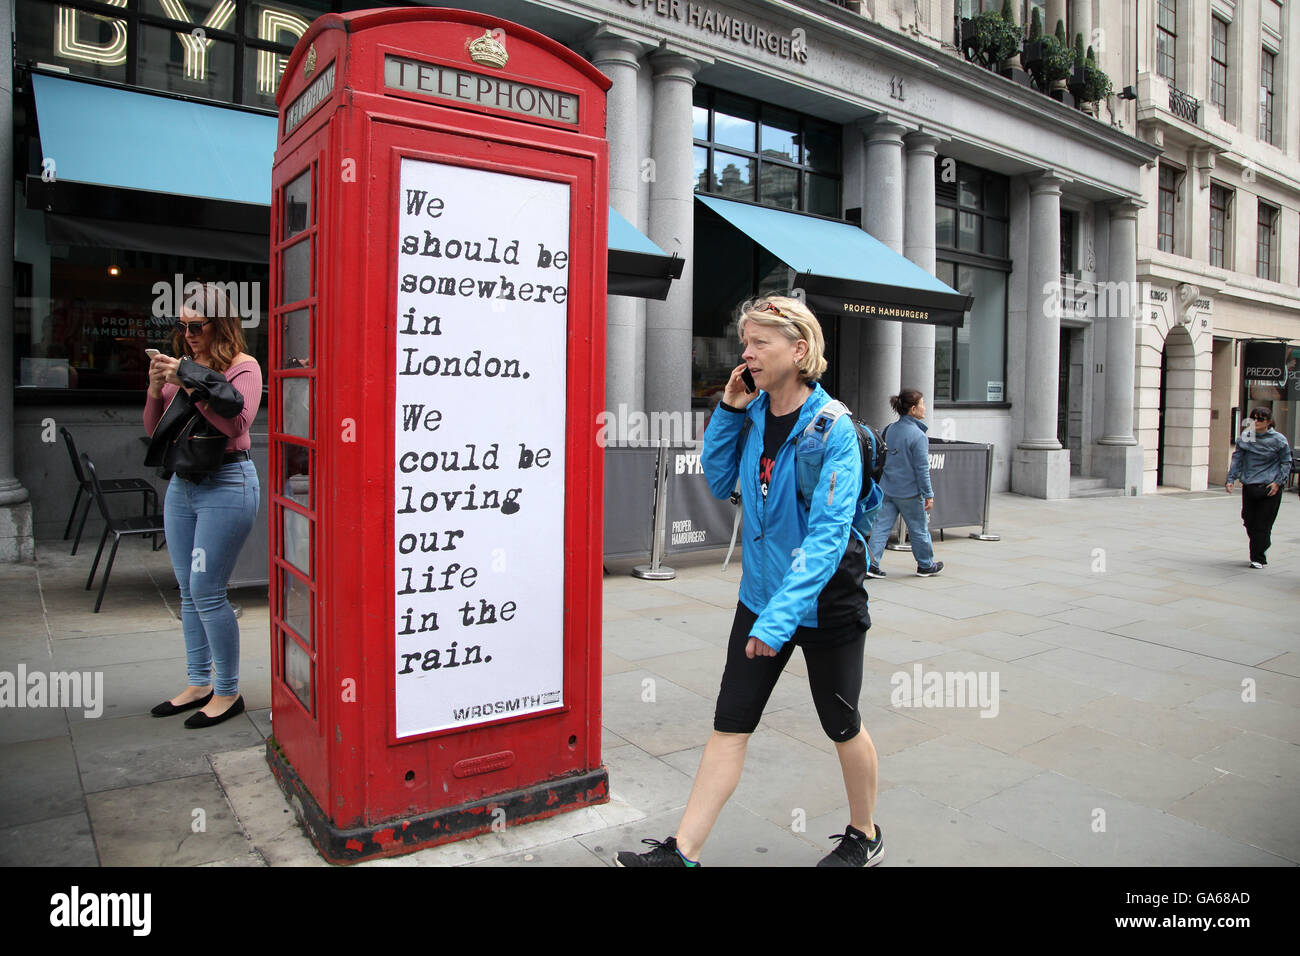 BYR
PROPER HAMBURGERS
11
TELEPHONE
TELEPHONE
We
should be
somewhere
in
London.
We
could be
loving
our
life
in the
rain.
WRDSMTH
PROPER
HAMBURGERS
PROPER HAMBURGERS
BY
RON
PROPER
HAMBURGERS
11
KINGS
HOUSE
10
10
PREZZO
a
alamy
alamy stock photo
GA68AD
www.alamy.com